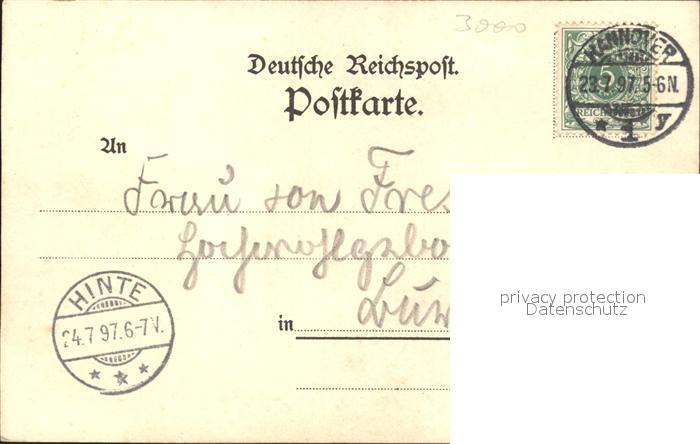 3000
Deutsche Reichspost.
Postkarte.
HANNOVER
23.7.97.5-6N.
* 1 y
5
REICHSPOST
An
Frau von Fres
Hochwohlgebo
in
HINTE
24.7.97.6-7V.
* * *
privacy protection
Datenschutz